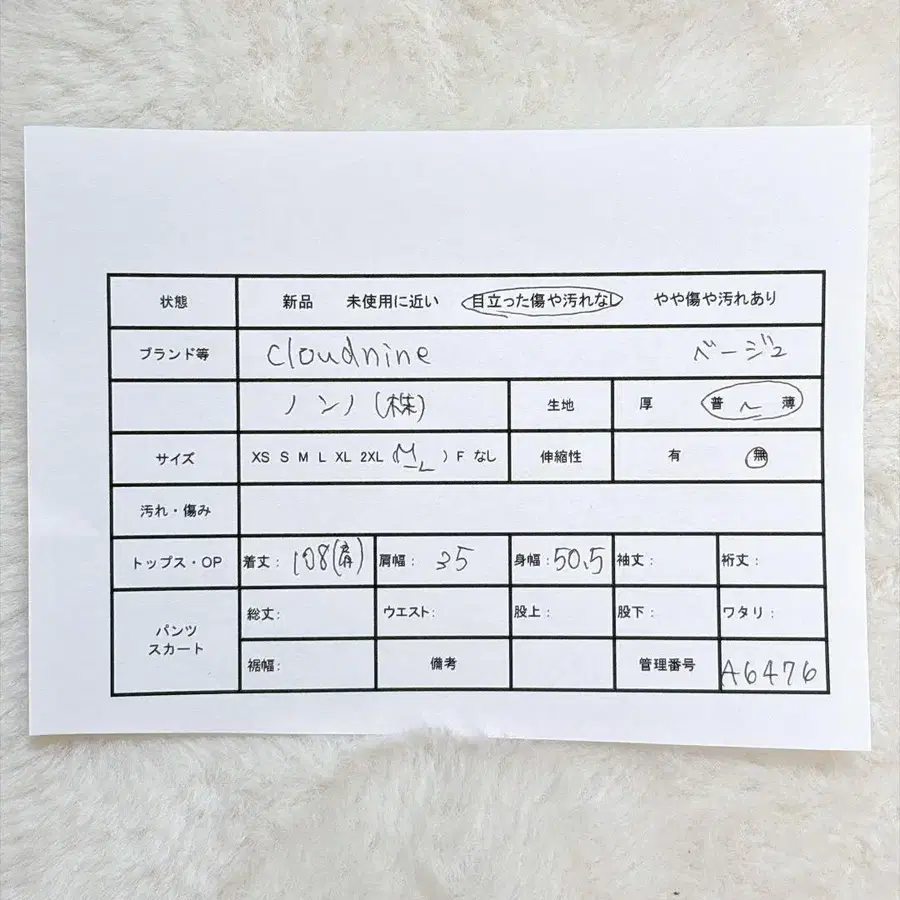 状態 新品 未使用に近い 目立った傷や汚れなし やや傷や汚れあり
ブランド等 cloudnine ベージュ
ノンノ(株) 生地 厚 普 〜 薄
サイズ XS S M L XL 2XL (M-L) F なし 伸縮性 有 無
汚れ・傷み
トップス・OP 着丈: 108(肩) 肩幅: 35 身幅: 50.5 袖丈: 裄丈:
パンツ スカート 総丈: ウエスト: 股上: 股下: ワタリ:
裾幅: 備考 管理番号 A6476